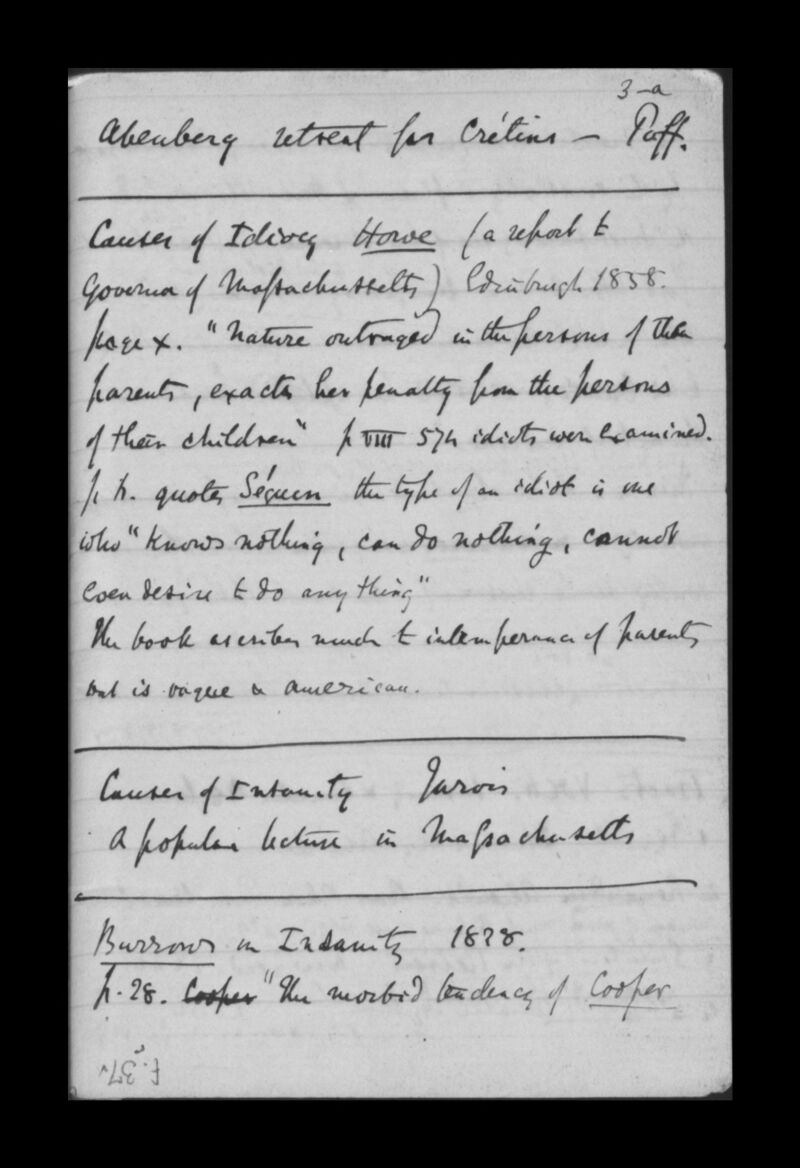 3-a
Abenberg retreat for Crétins — Puff.
Causes of Idiocy Howe (a report to
Governor of Massachusetts) Edinburgh 1858.
page x. "Nature outraged in the persons of the
parents, exacts her penalty from the persons
of their children" p VIII 574 idiots were examined.
p quotes Séguin the type of an idiot is one
who "knows nothing, can do nothing, cannot
even desire to do anything"
The book ascribes much to intemperance of parents
but is vague & american.
Causes of Insanity Jarvis
A popular lecture in Massachusetts
Burrows on Insanity 1828.
p. 28. Cooper "The morbid tendency of Cooper
f. 37v